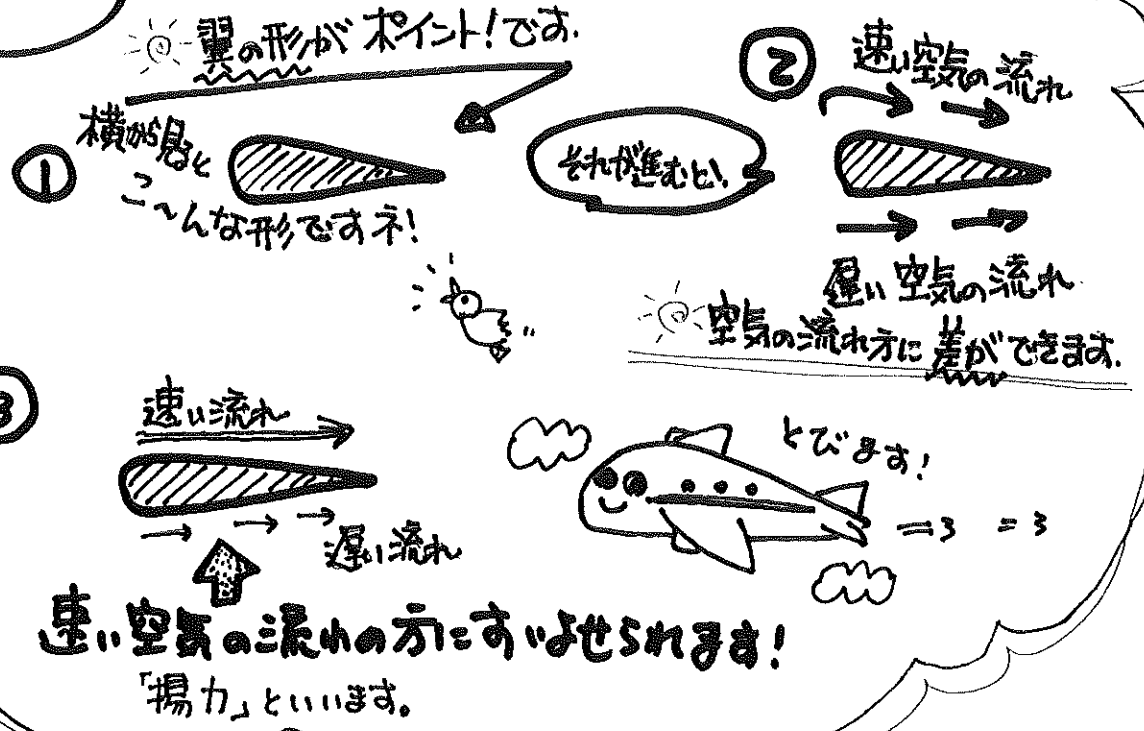 翼の形がポイント!です.
① 横から見ると
こ〜んな形ですネ!
それが進むと!
② 速い空気の流れ
遅い空気の流れ
空気の流れ方に差ができます.
3
速い流れ
遅い流れ
とびます!
速い空気の流れの方にすいよせられます!
「揚力」といいます。